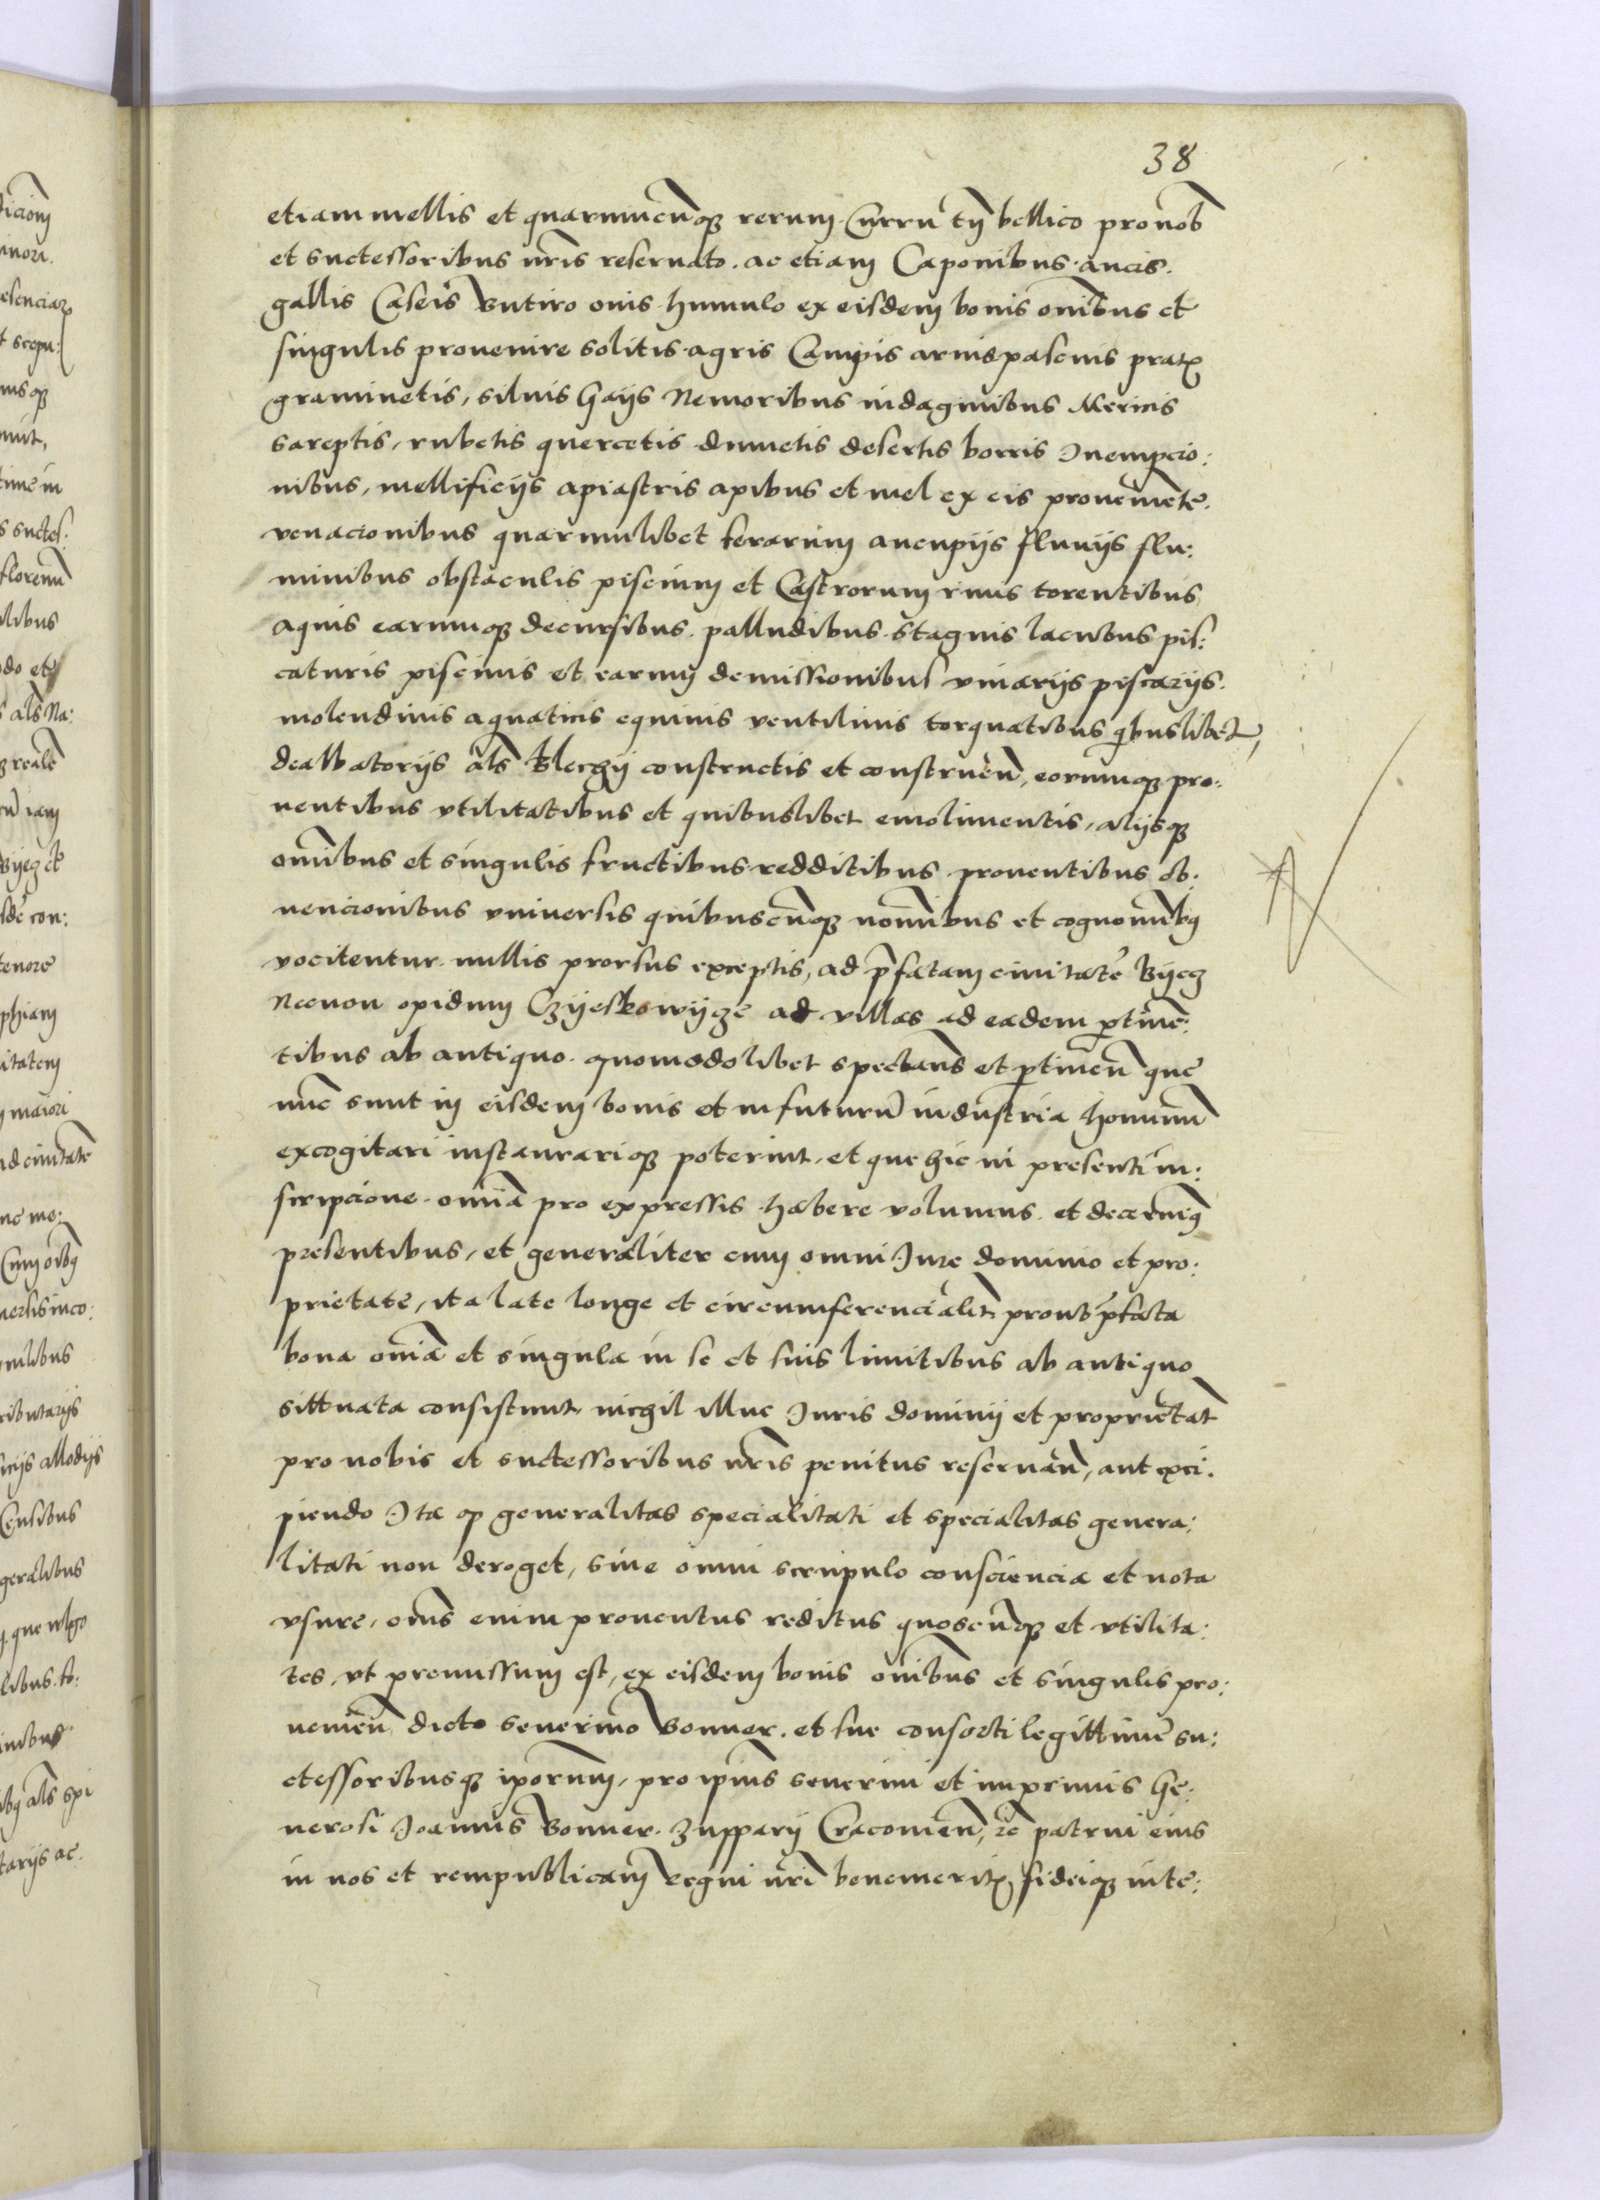 38
etiam mellis et quarumcuq3 rerum. Curru tn bellico pro nob
et successoribus nris reseruato. ac etiam Caponibus. aucis.
gallis Caseis Butiro ouis humulo ex eisdem bonis onibus et
singulis prouenire solitis. agris Campis aruis pascuis prat
graminetis, siluis Gaijs Nemoribus indaginibus Mericis
sareptis, rubetis quercetis dumetis desertis borris Inempcio:
nibus, mellificijs apiastris apibus et mel ex eis proueniente.
venacionibus quarumlibet ferarum aucupijs fluuijs flu:
minibus obstaculis piscium et Castrorum riuis torentibus
aquis earumq3 decursibus. palludibus. stagnis lacubus pis:
caturis piscinis et earum demissionibus viuarijs piscarijs.
molendinis aquaticis equinis ventilinis torquatibus qbuslibet,
dealbatorijs als Blechy constructis et construen, eorumq3 pro:
uentibus vtilitatibus et quibuslibet emolimentis, alijsq3
omibus et singulis fructibus redditibus prouentibus ob:
uencionibus vniuersis quibuscuq3 nomibus et cognomibq
vocitentur. nullis prorsus exceptis, ad pfatam ciuitate Byecz
Necnon opidum Czyeskowycze ac villas ad eadem ptine:
tibus ab antiquo. quomodolibet spectans et ptinen que
nuc sunt in eisdem bonis et in futuru industria hominu
excogitari instaurariq3 poterint, et que hic in presenti in:
scripcione. omia pro expressis habere volumus. et decernimq
presentibus, et generaliter cum omni Jure dominio et pro:
prietate, ita late longe et circumferencialit prout pfata
bona omia et singula in se et suis limitibus ab antiquo
sittuata consistunt, nichil illuc Juris dominij et proprietat
pro nobis et successoribus nris penitus reseruan, aut exci:
piendo Ita q generalitas specialitati et specialitas genera:
litati non deroget, sine omni scrupulo consciencia et nota
vsure, oms enim prouentus reditus quoscuq3 et vtilita:
tes, vt premissum est, ex eisdem bonis omibus et singulis pro:
uenien dicto Seuerino Bonner. et sue consorti legittime su:
ccessoribusq3 ipsorum, pro ipius Seuerini et inprimis Ge:
nerosi Joannis Bonner. Zupparij Cracouien, rc patrui eius
in nos et rempublicam regni nri benemerit fideiq3 inte: